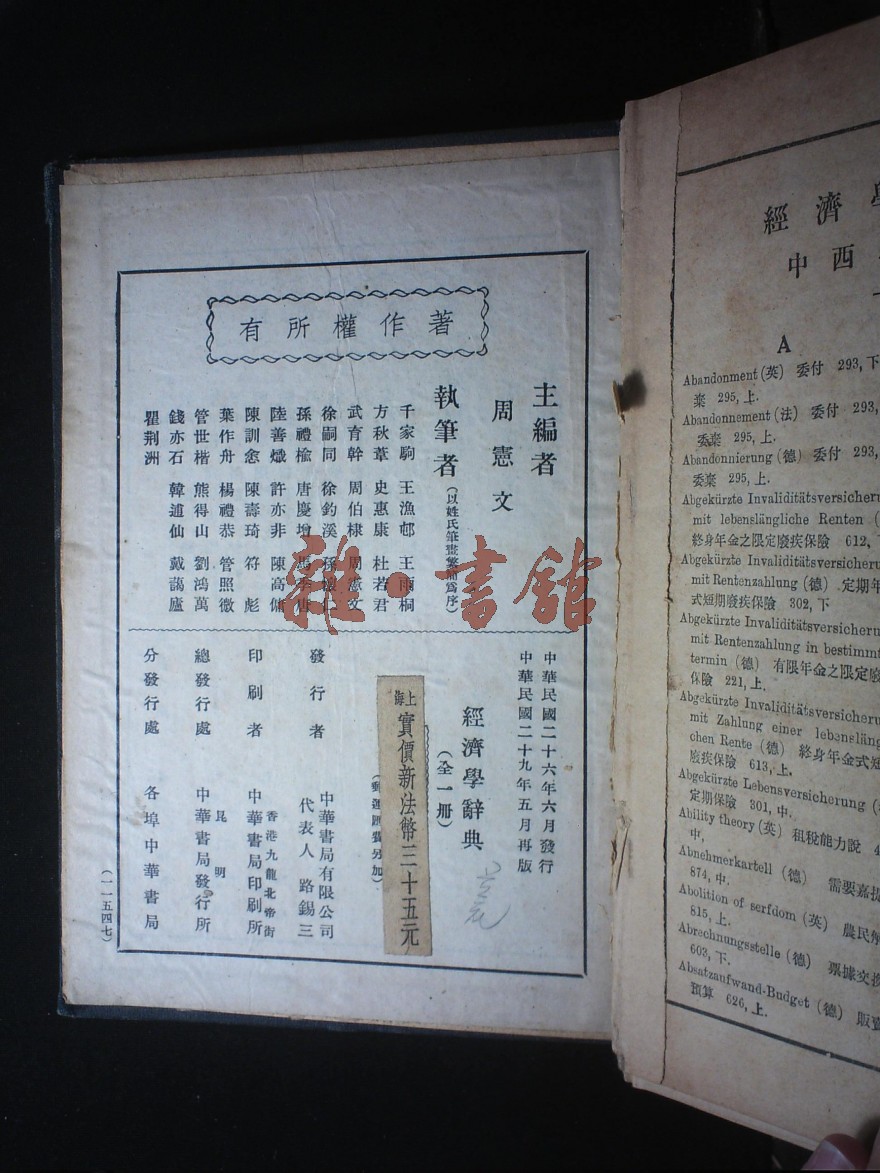 著作權所有
主編者
周憲文
執筆者(以姓氏筆畫繁簡爲序)
千家駒 王漁邨 王雨桐
方秋葦 史惠康 杜若君
武育幹 周伯棣 周憲文
徐嗣同 徐鈞溪 孫懷仁
孫禮楡 唐慶增 馬季唐
陸善熾 許亦非 陳高傭
陳訓悆 陳壽琦 符彪
葉作舟 楊禮恭 管照微
管世楷 熊得山 劉鴻萬
錢亦石 韓逋仙 戴藹廬
瞿荆洲
中華民國二十六年六月發行
中華民國二十九年五月再版
經濟學辭典
(全一册)
上海實價新法幣三十五元
(郵運匯費另加)
發行者
中華書局有限公司
代表人 路錫三
印刷者
香港九龍北帝街
中華書局印刷所
總發行處
昆明
中華書局發行所
分發行處
各埠中華書局
(一一五四七)
雜·書館
經濟學
中西
A
Abandonment (英) 委付 293, 下
棄 295, 上.
Abandonnement (法) 委付 293,
委棄 295, 上.
Abandonnierung (德) 委付 293,
委棄 295, 上.
Abgekürzte Invaliditätsversicheru
mit lebenslängliche Renten (
終身年金之限定廢疾保險 612,
Abgekürzte Invaliditätsversicheru
mit Rentenzahlung (德) 定期年
式短期廢疾保險 302, 下
Abgekürzte Invaliditätsversicheru
mit Rentenzahlung in bestimmt
termin (德) 有限年金之限定廢
保險 221, 上.
Abgekürzte Invaliditätsversicheru
mit Zahlung einer lebensläng
chen Rente (德) 終身年金式短
廢疾保險 613, 上.
Abgekürzte Lebensversicherung (
定期保險 301, 中.
Ability theory (英) 租稅能力說 4
中,
Abnehmerkartell (德) 需要嘉提
874, 中.
Abolition of serfdom (英) 農民解
815, 上.
Abrechnungsstelle (德) 票據交換
603, 下.
Absatzaufwand-Budget (德) 販賣
預算 626, 上.